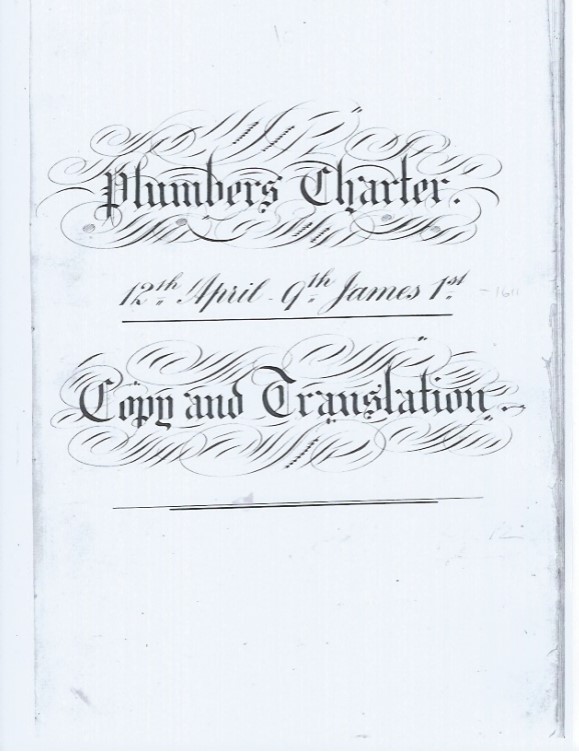 Plumbers Charter.
12th. April - 9th. James 1st. - 1611
Copy and Translation.